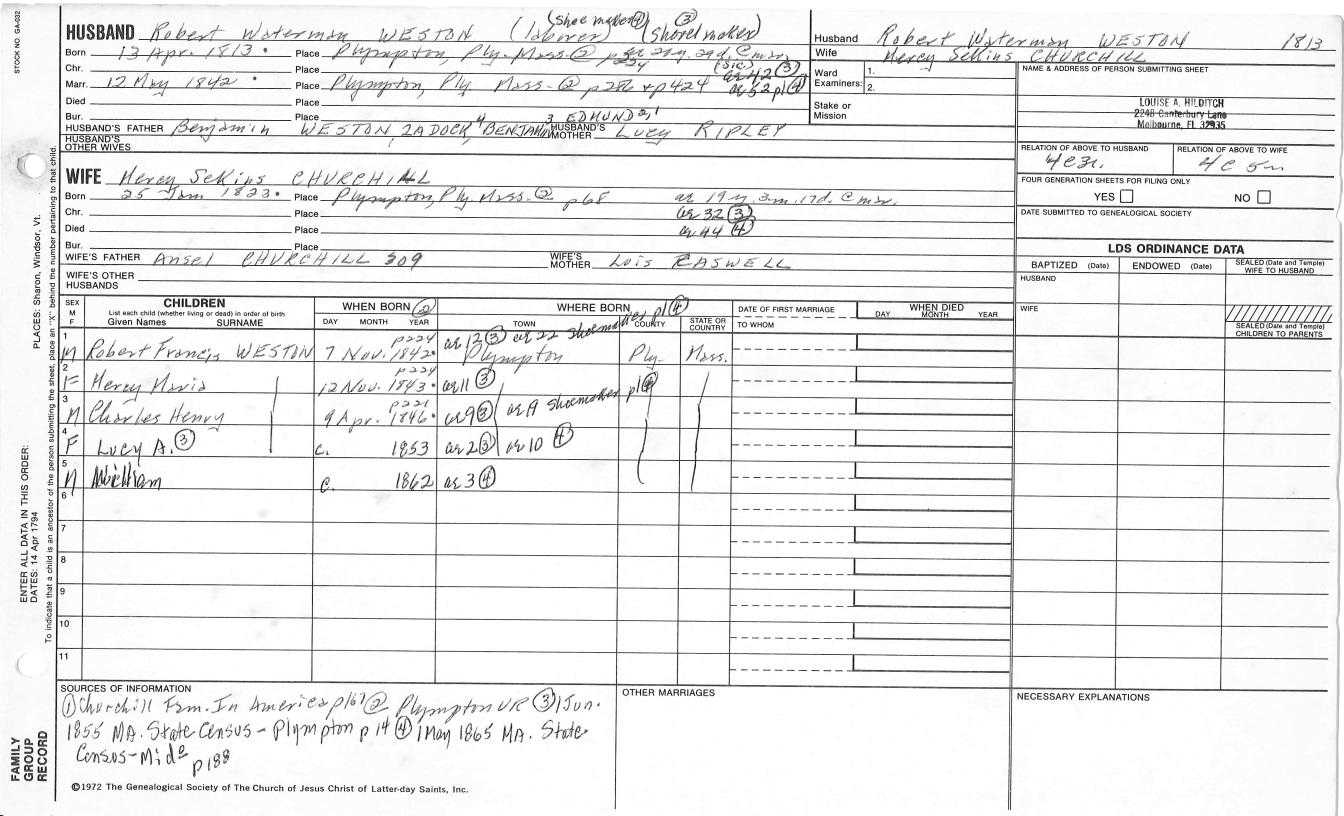 STOCK NO. GA-032
HUSBAND Robert Waterman WESTON (laborer) (shoe maker ④) (③ shovel maker)
Born 13 Apr. 1813. Place Plympton, Ply. Mass. ② ae 29y. 29d. @ mar.
Chr. Place (sic) ae 42 ③
Marr. 12 May 1842 Place Plympton, Ply Mass. ② p286 & p424 ae 52 p1 ④
Died Place
Bur. Place
HUSBAND'S FATHER Benjamin WESTON, ZADOCK, 4 BENJAMIN 3 EDMUND 2, 1 HUSBAND'S MOTHER Lucy RIPLEY
HUSBAND'S OTHER WIVES
WIFE Mercy Sekins CHURCHILL
Born 25 Jan 1823. Place Plympton, Ply Mass. ② p68 ae 19 y. 3 m. 17d. @ mar.
Chr. Place ae 32 ③
Died Place ae 44 ④
Bur. Place
WIFE'S FATHER Ansel CHURCHILL 309 WIFE'S MOTHER Lois RASWELL
WIFE'S OTHER HUSBANDS
Husband Robert Waterman WESTON 1813
Wife Mercy Sekins CHURCHILL
Ward Examiners: 1.
2.
Stake or Mission
NAME & ADDRESS OF PERSON SUBMITTING SHEET
LOUISE A. HILDITCH
2248 Canterbury Lane
Melbourne, FL 32935
RELATION OF ABOVE TO HUSBAND RELATION OF ABOVE TO WIFE
4c3r. 4c5r
FOUR GENERATION SHEETS FOR FILING ONLY
YES NO
DATE SUBMITTED TO GENEALOGICAL SOCIETY
LDS ORDINANCE DATA
BAPTIZED (Date) ENDOWED (Date) SEALED (Date and Temple) WIFE TO HUSBAND
HUSBAND
WIFE
SEALED (Date and Temple) CHILDREN TO PARENTS
SEX M F CHILDREN WHEN BORN ② WHERE BORN DATE OF FIRST MARRIAGE WHEN DIED
List each child (whether living or dead) in order of birth
Given Names SURNAME DAY MONTH YEAR TOWN COUNTY STATE OR COUNTRY TO WHOM DAY MONTH YEAR
p224 ae 12 ③ ae 22 shoemaker p1 ④
1 M Robert Francis WESTON 7 Nov. 1842. Plympton Ply. Mass.
p224
2 F Mercy Maria 12 Nov. 1843. ae 11 ③
p221
3 M Charles Henry 9 Apr. 1846. ae 9 ③ ae 19 shoemaker p1 ④
4 F Lucy A. ③ c. 1853 ae 2 ③ ae 10 ④
5 M William c. 1862 ae 3 ④
6
7
8
9
10
11
SOURCES OF INFORMATION
① Churchill Fam. In America p167 ② Plympton VR ③ 1 Jun.
1855 MA. State Census - Plympton p 14 ④ 1 May 1865 MA. State
Census - Mid
p188
OTHER MARRIAGES
NECESSARY EXPLANATIONS
©1972 The Genealogical Society of The Church of Jesus Christ of Latter-day Saints, Inc.
FAMILY GROUP RECORD
ENTER ALL DATA IN THIS ORDER:
DATES: 14 Apr 1794
PLACES: Sharon, Windsor, Vt.
To indicate that a child is an ancestor of the person submitting the sheet, place an "X" behind the number pertaining to that child.